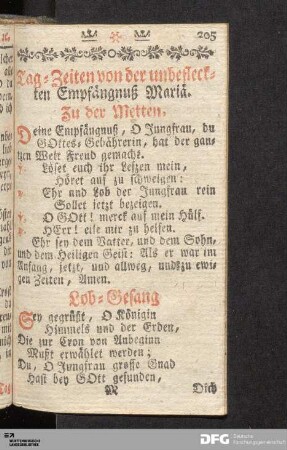 205
Tag-Zeiten von der unbefleck-
ten Empfängnuß Mariä.
Zu der Metten.
Deine Empfängnuß, O Jungfrau, du
GOttes-Gebährerin, hat der gan-
tzen Welt Freud gemacht.
v. Löset euch ihr Lefzen mein,
Höret auf zu schweigen:
Ehr und Lob der Jungfrau rein
Sollet jetzt bezeigen.
v. O GOtt! merck auf mein Hülf.
HErr! eile mir zu helfen.
Ehr sey dem Vatter, und dem Sohn,
und dem Heiligen Geist: Als er war im
Anfang, jetzt, und allweg, und zu ewi-
gen Zeiten, Amen.
Lob-Gesang
Sey gegrüßt, O Königin
Himmels und der Erden,
Die zur Cron von Anbeginn
Mußt erwählet werden;
Du, O Jungfrau grosse Gnad
Hast bey GOtt gefunden,
Dich
DFG Deutsche
Forschungsgemeinschaft